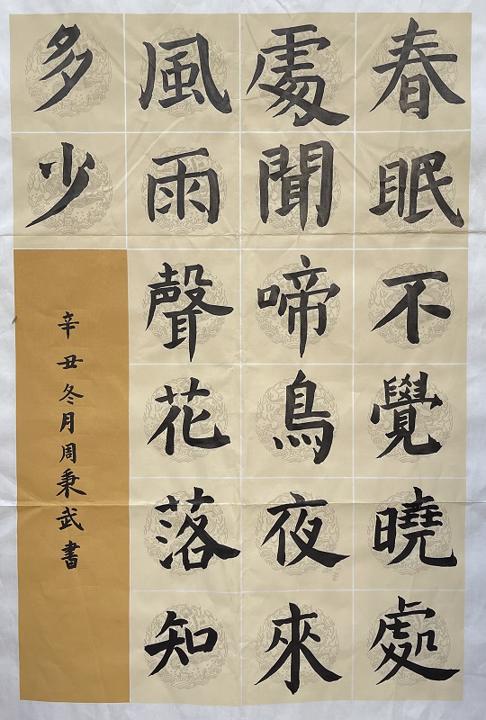 春眠不覺曉處
處聞啼鳥夜來
風雨聲花落知
多少
辛丑冬月周秉武書